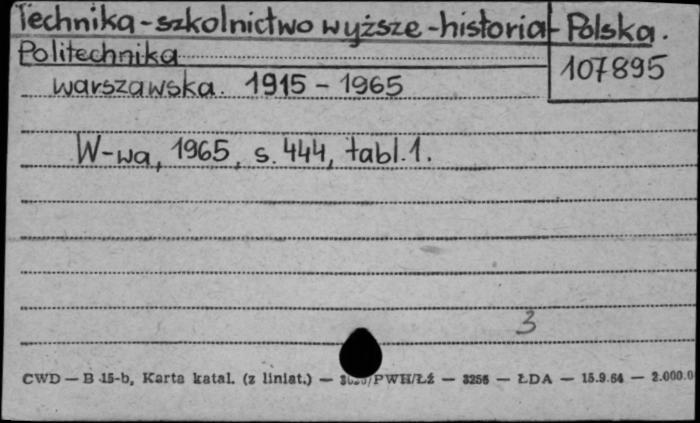 Technika - szkolnictwo wyższe - historia - Polska.
Politechnika
107895
warszawska. 1915 - 1965
W-wa, 1965, s. 444, tabl. 1.
3
CWD — B 15-b, Karta katal. (z liniat.) — /PWH/ŁŹ — 3256 — ŁDA — 15.9.64 — 2.000.0